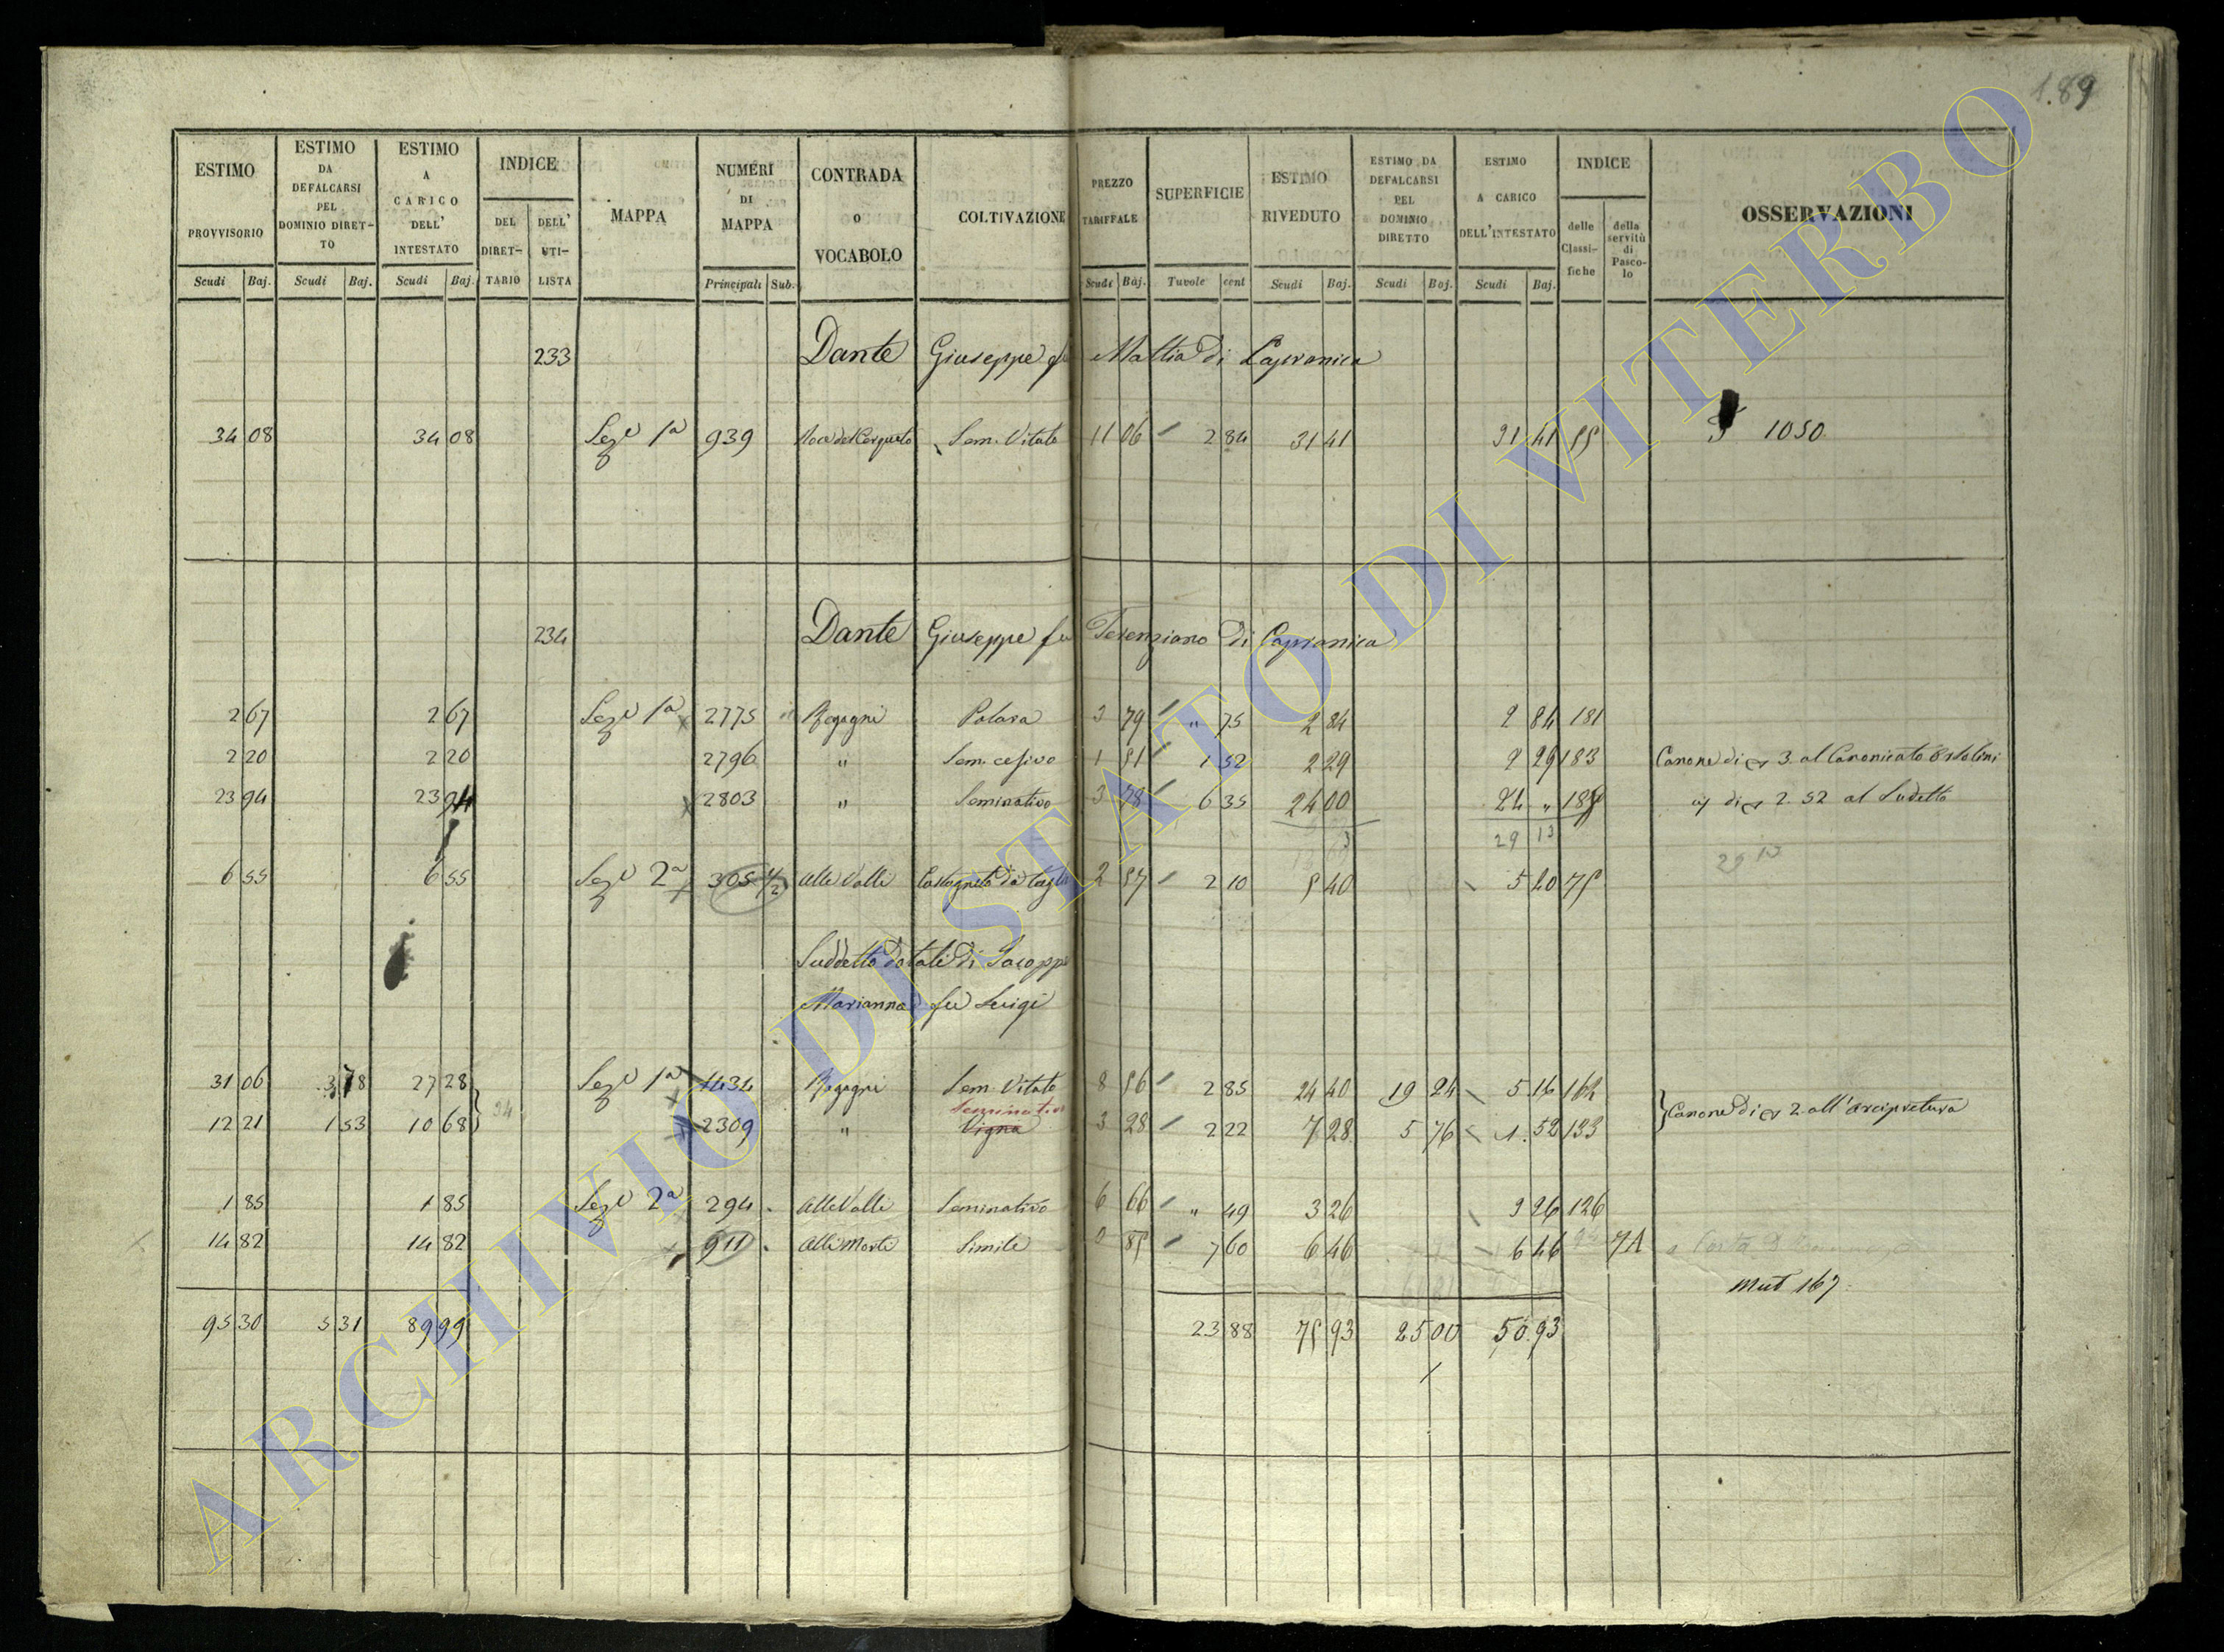 189
ESTIMO PROVVISORIO Scudi Baj.
ESTIMO DA DEFALCARSI PEL DOMINIO DIRETTO Scudi Baj.
ESTIMO A CARICO DELL' INTESTATO Scudi Baj.
INDICE DEL DIRETTARIO DELL' UTILISTA
MAPPA
NUMERI DI MAPPA Principali Sub.
CONTRADA O VOCABOLO
COLTIVAZIONE
PREZZO TARIFFALE Scudi Baj.
SUPERFICIE Tavole cent
ESTIMO RIVEDUTO Scudi Baj.
ESTIMO DA DEFALCARSI PEL DOMINIO DIRETTO Scudi Baj.
ESTIMO A CARICO DELL'INTESTATO Scudi Baj.
INDICE delle Classifiche della servitù di Pascolo
OSSERVAZIONI
233 Dante Giuseppe fu Mattia di Capranica
34 08 34 08 Sez.e 1a 939 Sem. Vitato 11 06 2 84 31 41 31 41 55 1050
234 Dante Giuseppe fu Terenziano di Capranica
2 67 2 67 Sez.e 1a 2775 Regagni 3 79 " 75 2 84 2 84 181
2 20 2 20 2796 " Sem. cesivo 1 51 1 52 2 29 2 29 183 Canone di 3 al Canonicato
23 94 23 94 2803 " Seminativo 3 78 6 35 24 00 24 " di 2.52 al Sudetto
29 13
29 13
6 55 6 55 Sez.e 2a 305 1/2 Alle Valli Castagneto da 2 57 2 10 5 40 5 40 75
Suddetto Dotali di
Marianna fu Luigi
31 06 3 78 27 28 Sez.e 1a 1434 Regagni Sem. Vitato 8 56 2 85 24 40 19 24 5 16 162
Seminativo
12 21 1 53 10 68 2309 " Vigna 3 28 2 22 7 28 5 76 1.52 133 Canone di 2 all'Arcipretura
1 85 1 85 Sez.e 2a 294 Alle Valli Seminativo 6 66 " 49 3 26 3 26 126
14 82 14 82 911 Alle Morte Simile 0 85 7 60 6 46 6 46 7A
Mut 167
95 30 5 31 89 99 23 88 75 93 25 00 50.93
ARCHIVIO DI STATO DI VITERBO